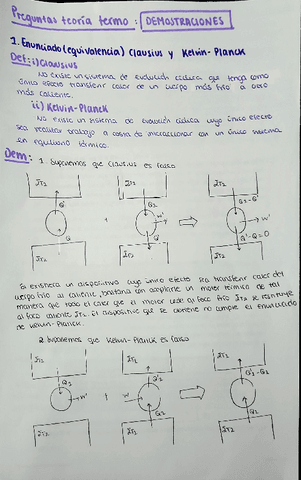 Preguntas teoría termo: DEMOSTRACIONES
1. Enunciado (equivalencia) Clausius y Kelvin-Planck
Def: i) Clausius
No existe un sistema de evolución cíclica que tenga como
único efecto transferir calor de un cuerpo más frío a otro
más caliente.
ii) Kelvin-Planck
No existe un sistema de evolución cíclica cuyo único efecto
sea realizar trabajo a costa de interaccionar con un único sistema
en equilibrio térmico.
Dem: 1. Suponemos que Clausius es falso
+
Q
Q
W'
Q2-Q'
W'
Q'-Q=0
Si existiera un dispositivo cuyo único efecto sea transferir calor del
cuerpo frío al caliente, bastaría con acoplarle un motor térmico de tal
manera que todo el calor que el motor cede al foco frío se restituye
al foco caliente. El dispositivo que se obtiene no cumple el enunciado
de Kelvin-Planck.
2. Suponemos que Kelvin-Planck es falso
+
Q2
W'
Q'2
W'
Q2
Q'2-Q2
Q2